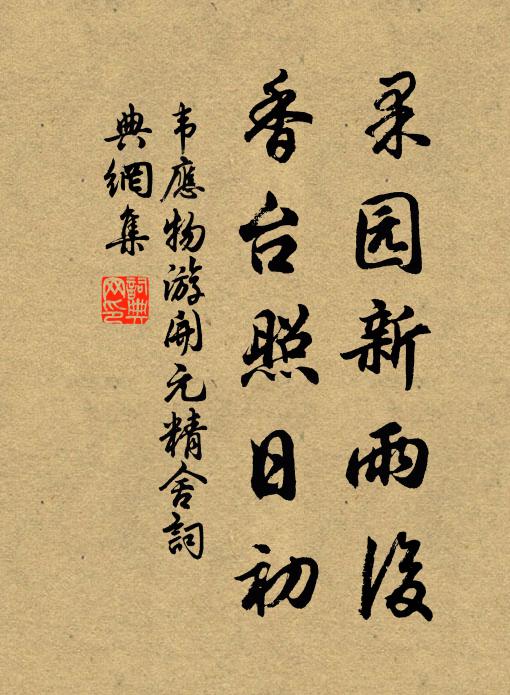 果园新雨後
香台照日初
韦應物游開元精舍詞
典網集
詞典
网印